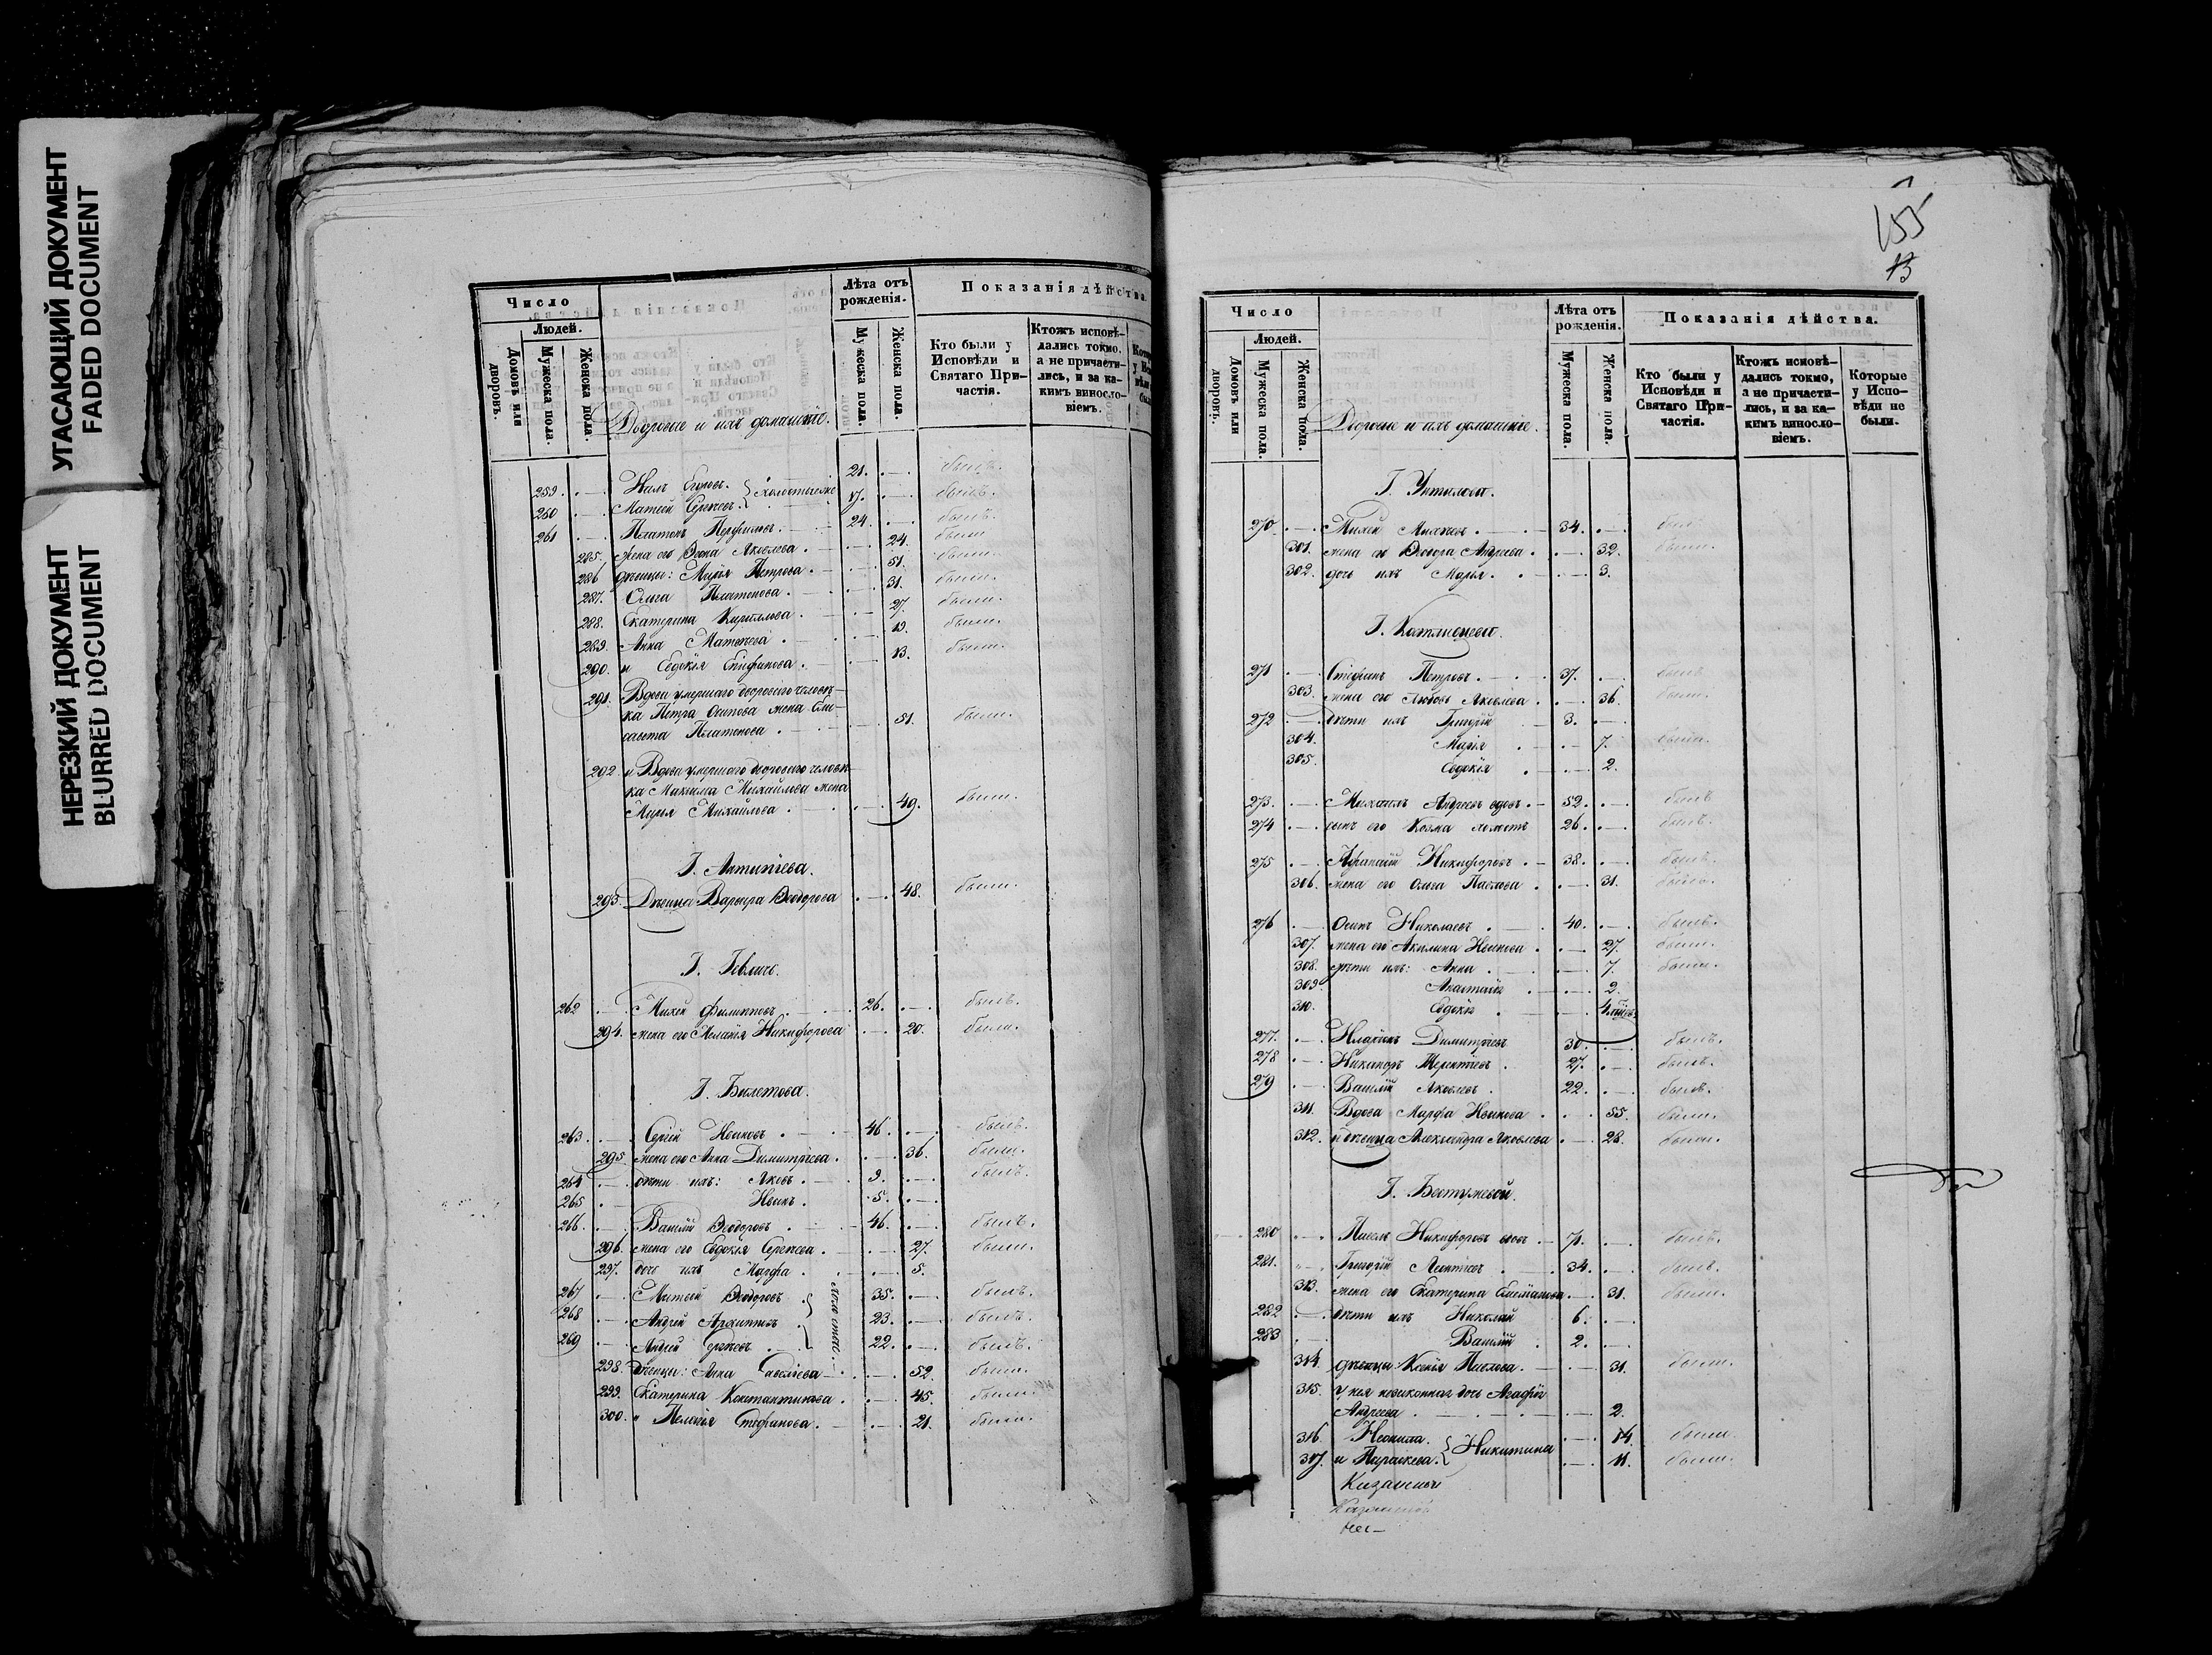 УГАСАЮЩИЙ ДОКУМЕНТ
FADED DOCUMENT
НЕРЕЗКИЙ ДОКУМЕНТ
BLURRED DOCUMENT
Число
Людей.
Домовъ или дворовъ.
Мужеска пола.
Женска пола.
Дворовые и ихъ домашніе.
Лѣта отъ рожденія.
Мужеска пола.
Женска пола.
Показанія дѣйства.
Кто были у Исповѣди и Святаго Причастія.
Ктожъ исповѣдались токмо, а не причастились, и за какимъ винословіемъ.
259. Нилъ Егоровъ. 21. былъ.
260 Матвей Сергеевъ. 17. былъ.
261 Платонъ Перфильевъ. 24. былъ.
285. жена его Яковлева. 24. была
286 девицы: Марья Петрова. 51. была.
287. Ольга Платонова. 31. была.
288. Екатерина Кирилова. 27. была.
289. Анна Матвеева. 19. была.
290. и Евдокія Епифанова. 13. была.
291. Вдова умершаго двороваго человѣ-
ка Петра Осипова жена Ели-
савета Платонова. 51. была.
292. и Вдова умершаго двороваго человѣ-
ка Максима Михайлова жена
Марья Михайлова. 49. была.
Г. Антипіева.
293. Дѣвица Варвара Ѳеодорова 48. была.
Г.
262 Михей Филипповъ. 26. былъ.
294. жена его Меланія Никифорова 20. была.
Г. Билетова.
263. Сергій Ивановъ. 46. былъ.
295. жена его Анна Димитріева. 36. была.
264 дѣти ихъ: Яковъ. 9. былъ.
265 Иванъ. 5.
266. Василій Ѳеодоровъ. 46. былъ.
296. жена его Евдокія Сергѣева. 27. была.
297. дочь ихъ Марфа. 5.
267 Матвей Ѳеодоровъ 35. былъ.
268 Андрей Архиповъ 23. былъ.
269 Андрей Сергѣевъ 22. былъ.
298. Дѣвицы: Анна Савельева 52. была.
299. Екатерина Константинова. 45. была.
300. и Пелагія Стефанова. 21. была.
155
13
Число
Людей.
Домовъ или дворовъ.
Мужеска пола.
Женска пола.
Дворовые и ихъ домашніе.
Лѣта отъ рожденія.
Мужеска пола.
Женска пола.
Показанія дѣйства.
Кто были у Исповѣди и Святаго Причастія.
Ктожъ исповѣдались токмо, а не причастились, и за какимъ винословіемъ.
Которые у Исповѣди не были.
Г.
270. Михей Михѣевъ. 34. былъ
301. жена его Ѳеодора Андреева. 32. была.
302. дочь ихъ Марья. 3.
Г.
271 Стефанъ Петровъ. 37. былъ
303. жена его Любовь Яковлева. 36. была.
272 дѣти ихъ Григорій 3.
304. Марія 7. была.
305. Евдокія 2.
273. Михаилъ Андреевъ вдовъ. 52. былъ
274 сынъ его Козма холостъ 26. былъ.
275 Афанасій Никифоровъ. 38. былъ.
306. жена его Ольга Павлова. 31. была.
276 Осипъ Николаевъ. 40. былъ.
307. жена его Акилина Иванова. 27. была.
308. дѣти ихъ: Анна. 7. была.
309. Анастасія 2.
310. Евдокія 4
277. Иларіонъ Димитріевъ 30. былъ.
278 Никаноръ Терентіевъ. 27. былъ.
279 Василій Яковлевъ. 22. былъ.
311. Вдова Марфа Иванова. 55. была.
312. и дѣвица Александра Яковлева. 28. была.
Г. Бестужевой.
280 Павелъ Никифоровъ вдовъ. 71. былъ.
281. Григорій Леонтіевъ 34. былъ.
313. жена его Екатерина 31. была.
282 дѣти ихъ Николай 6.
283 Василій. 2.
314. дѣвица Ксенія Павлова. 31. была.
315. у нея незаконная дочь Агафія
Андреева. 2.
316 Неонила. 14. была.
317. и Параскева. Никитины 11. была.
Казанской
Казанской